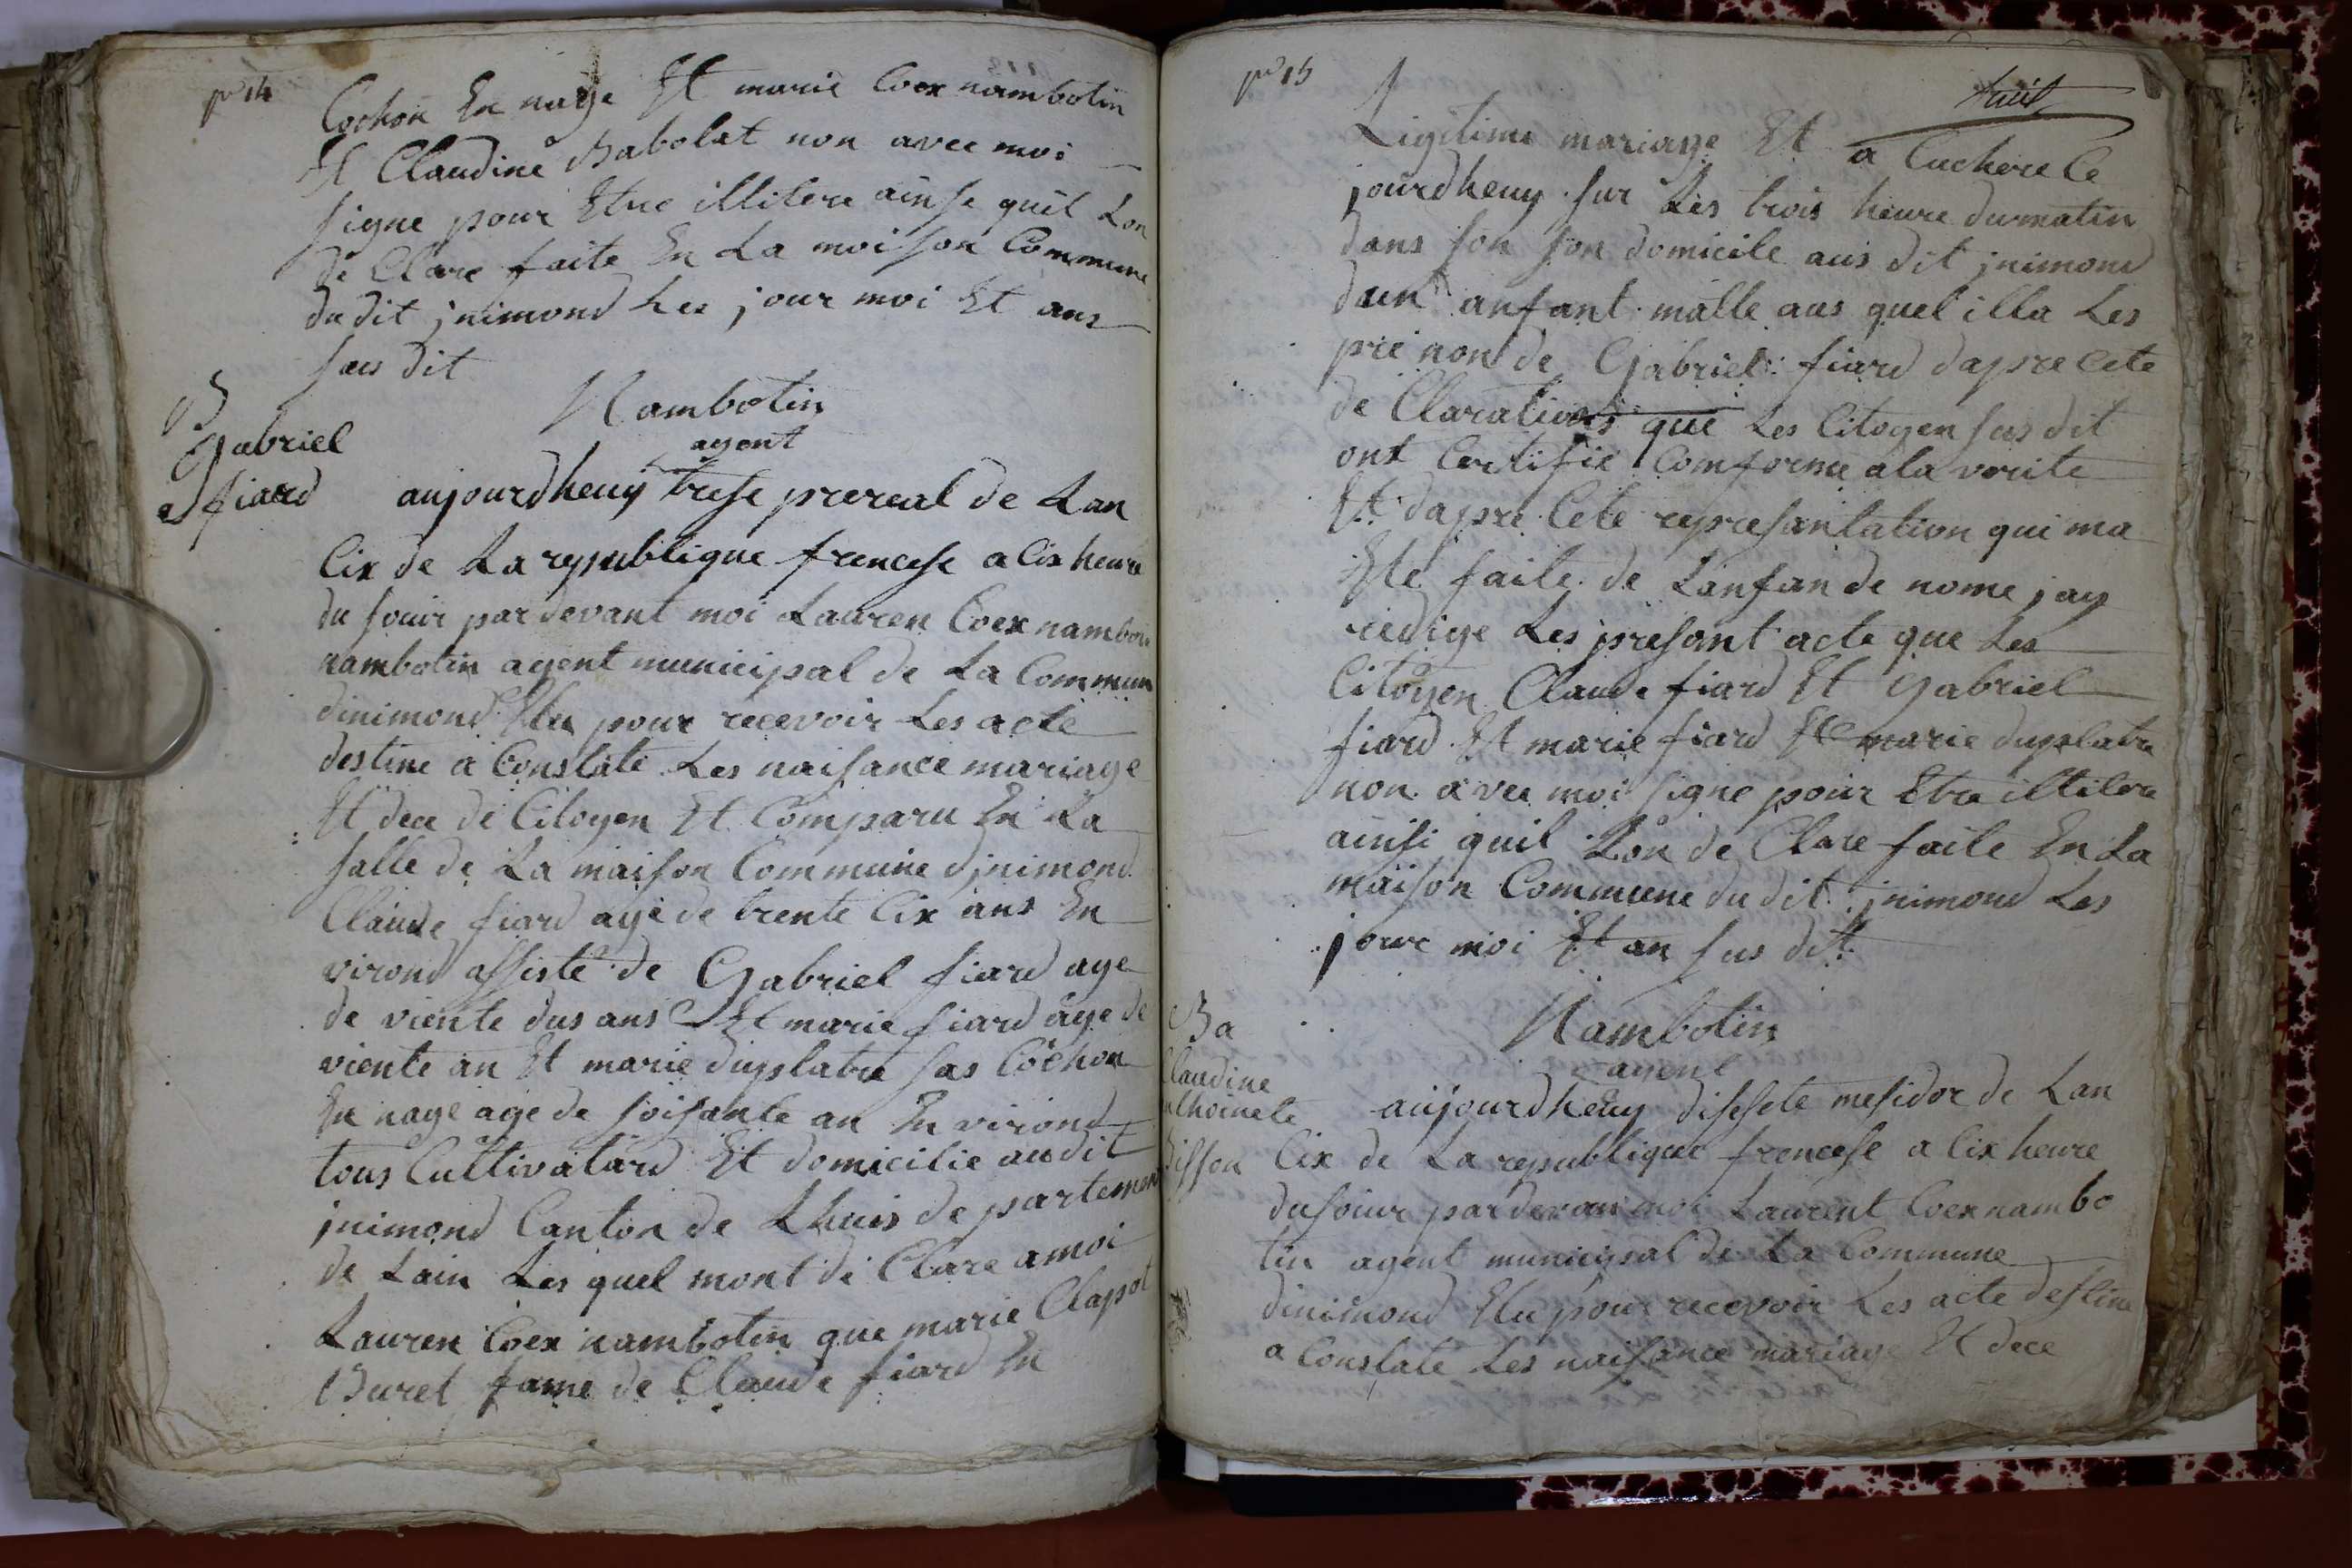 pe 14
Cochon En nage Et marie Coex nambotin
Et Claudine Babolat non avec moi
signe pour Etre illitere ainse quil Lon
de Clare faite En La moison Commune
du dit jnimond Les jour moi Et ans
sus dit
Nambotin
agent
B
Gabriel
fiard
aujourdheuy trese prereal de Lan
Cix de La republique francese a Cix heure
du souir par devant moi Lauren Coex nambou
nambotin agent municipal de La Commun
dinimond Elu pour recevoir Les acte
destine a Constate Les naisance mariage
Et dece de Citoyen Et Comparu En La
salle de La maison Commune djnimond
Claude fiard age de trente Cix ans En
virond assiste de Gabriel fiard age
de viente dus ans Et marie fiard age de
viente an Et marie duplatre sas Cochon
En nage age de soisante an En virond
tous Cultivatard Et domicilie audit
jnimond Canton de Lhuis departement
de Lain Les quel mont de Clare amoi
Lauren Coex nambotin que marie Clapot
Buret fame de Claude fiard En
pe 15
huit
Ligitime mariage Et a Cuchere Ce
jourdheuy sur Les trois heure dumatin
dans son son domicile aus dit jnimond
dun anfant malle aus quel illa Les
pre non de Gabriel fiard dapre Cete
de Clarations que Les Citoyen sus dit
ont Certifie Comforme ala verite
Et dapre Cete represantation qui ma
Ete faite de Lanfan de nome jay
redige Les presant acte que Les
Citoyen Claude fiard Et Gabriel
fiard Et marie fiard Et marie duplatre
non avec moi signe pour Etre illitere
ainsi quil Lon de Clare faite En La
maison Commune du dit jnimond Les
jour moi Et an sus dit
Nambotin
agent
Ba
Claudine
thoinete
Bisson
aujourdheuy dissete mesidor de Lan
Cix de La republique francese a Cix heure
dusouir pardevan moi Laurent Coex nambo
tin agent municipal de La Commune
dinimond Elu pour recevoir Les acte destine
a Constate Les naisance mariage Et dece